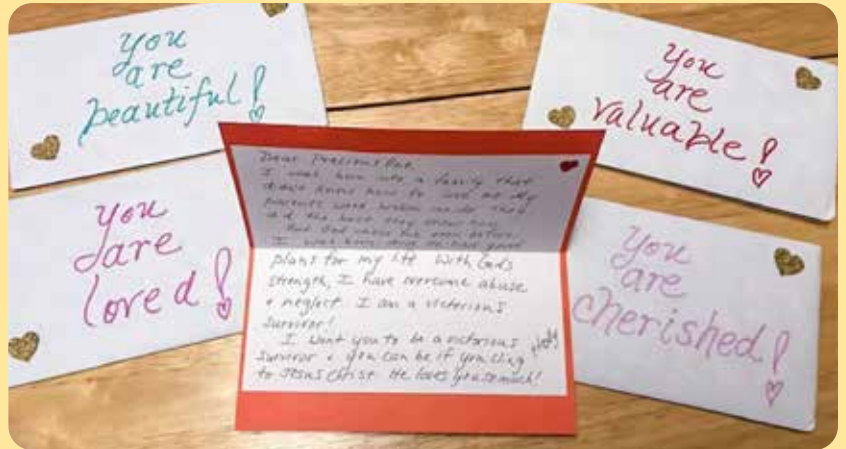 you
are
beautiful!
you
are
valuable!
you
are
loved!
you
are
cherished!
Dear Precious One,
I was born into a family that
didn't know how to love me. My
parents were broken and they
did the best they knew how.
But God chose me even before
I was born and He had good
plans for my life. With God's
strength, I have overcome abuse
+ neglect. I am a victorious
survivor!
I want you to be a victorious
survivor + you can be if you cling
to Jesus Christ. He loves you so much!